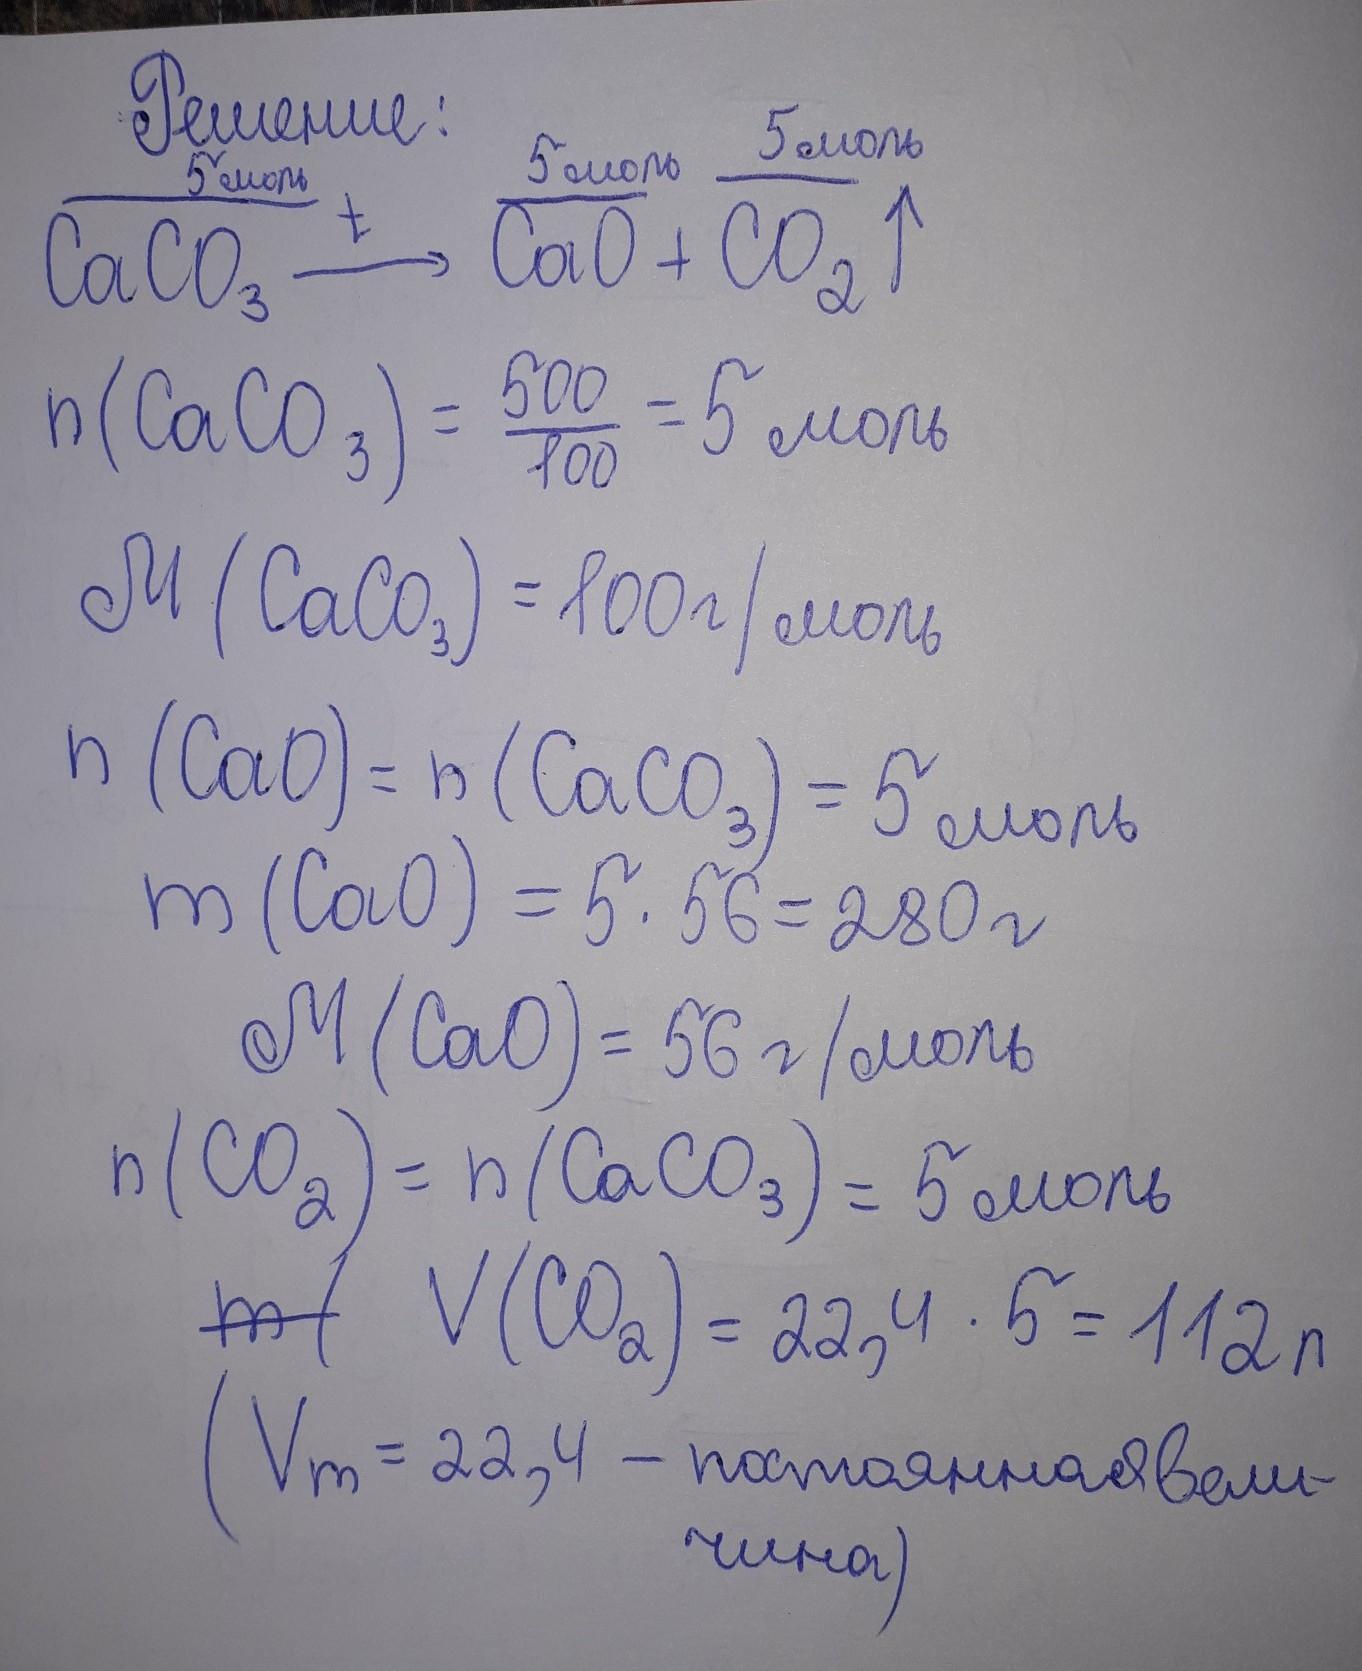 Решение:
5 моль 5 моль 5 моль
CaCO₃ t→ CaO + CO₂↑
n(CaCO₃) = 500/100 = 5 моль
M(CaCO₃) = 100г/моль
n(CaO) = n(CaCO₃) = 5 моль
m(CaO) = 5 · 56 = 280 г
M(CaO) = 56 г/моль
n(CO₂) = n(CaCO₃) = 5 моль
m( V(CO₂) = 22,4 · 5 = 112 л
(Vm = 22,4 – постоянная вели-
чина)